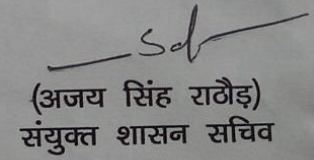 Sd
(अजय सिंह राठौड़)
संयुक्त शासन सचिव